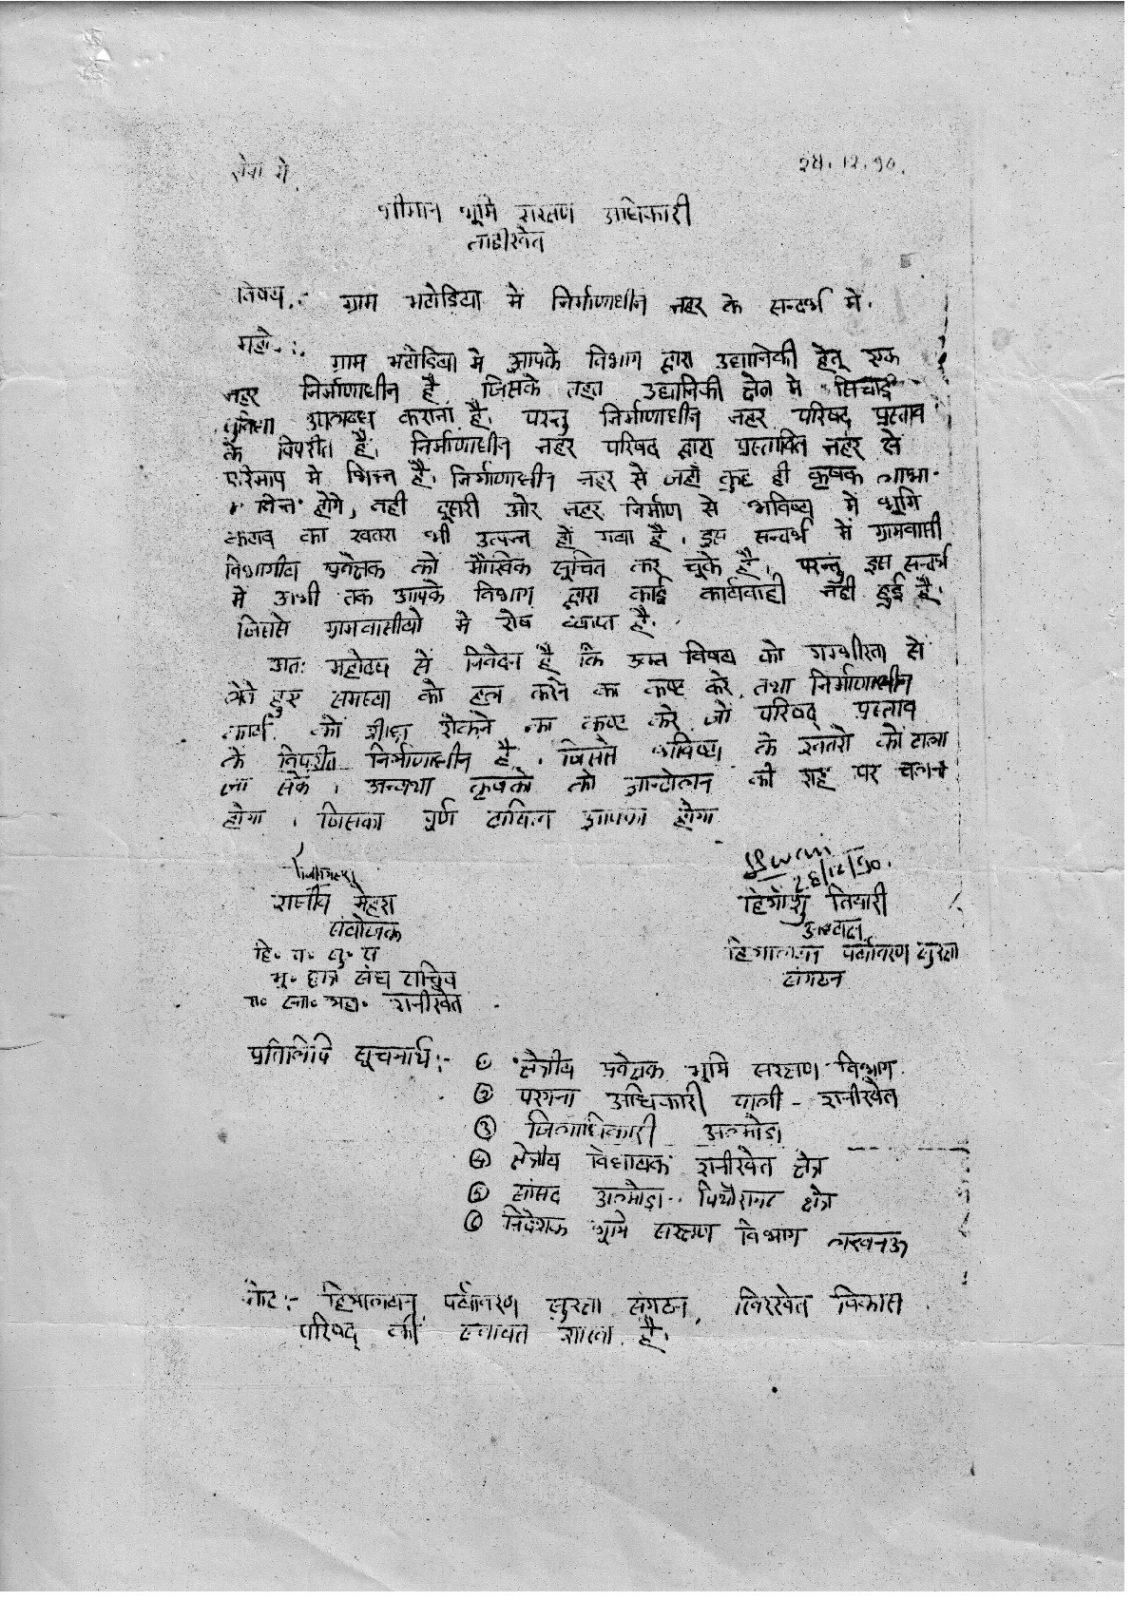 सेवा में
28.12.90.
श्रीमान भूमि संरक्षण अधिकारी
ताडीखेत
विषय:- ग्राम भटोडिया में निर्माणाधीन नहर के सन्दर्भ में.
महो-:.
ग्राम भटोडिया में आपके विभाग द्वारा उद्यानिकी हेतू एक
नहर निर्माणाधीन है जिसके तहत उद्यानिकी क्षेत्र में सिचाई
सुविधा उपलब्ध कराना है. परन्तु निर्माणाधीन नहर परिषद प्रस्ताव
के विपरीत है. निर्माणाधीन नहर परिषद द्वारा प्रस्तावित नहर से
परिमाप में भिन्न है. निर्माणाधीन नहर से जहाँ कुछ ही कृषक लाभा-
न्वित होगे, वही दूसरी ओर नहर निर्माण से भविष्य में भूमि
कटाव का खतरा भी उत्पन्न हो गया है. इस सन्दर्भ में ग्रामवासी
विभागीय प्रवेक्षक को मौखिक सूचित कर चूके है. परन्तु इस सन्दर्भ
में अभी तक आपके विभाग द्वारा कोई कार्यवाही नही हुई है.
जिससे ग्रामवासीयो में रोष व्याप्त है.
अतः महोदय से निवेदन है कि उक्त विषय को गम्भीरता से
लेते हुए समस्या को हल करने का कष्ट करे, तथा निर्माणाधीन
कार्य को शीघ्र रोकने का कष्ट करे जो परिषद् प्रस्ताव
के विपरीत निर्माणाधीन है. जिससे भविष्य के खतरो को टाला
जा सके. अन्यथा कृषको को आन्दोलन की राह पर चलना
होगा. जिसका पूर्ण दायित्व आपका होगा.
28/12/90.
राजीव मेहरा
संयोजक
हि. प. सु. स
भू. छात्र संघ सचिव
रा. स्ना. महा. रानीखेत
हिमाँशु तिवारी
अध्यक्ष
हिमालयन पर्यावरण सुरक्षा
संगठन
प्रतिलिपि सूचनार्थ:- ① क्षेत्रीय प्रवेक्षक भूमि संरक्षण विभाग.
② परगना अधिकारी पाली - रानीखेत
③ जिलाधिकारी अल्मोडा
④ क्षेत्रीय विधायक रानीखेत क्षेत्र
⑤ सांसद अल्मोडा-पिथौरागढ क्षेत्र
⑥ निदेशक भूमि संरक्षण विभाग लखनऊ
नोट:- हिमालयन पर्यावरण सुरक्षा संगठन, विकास
परिषद् की शाखा है.